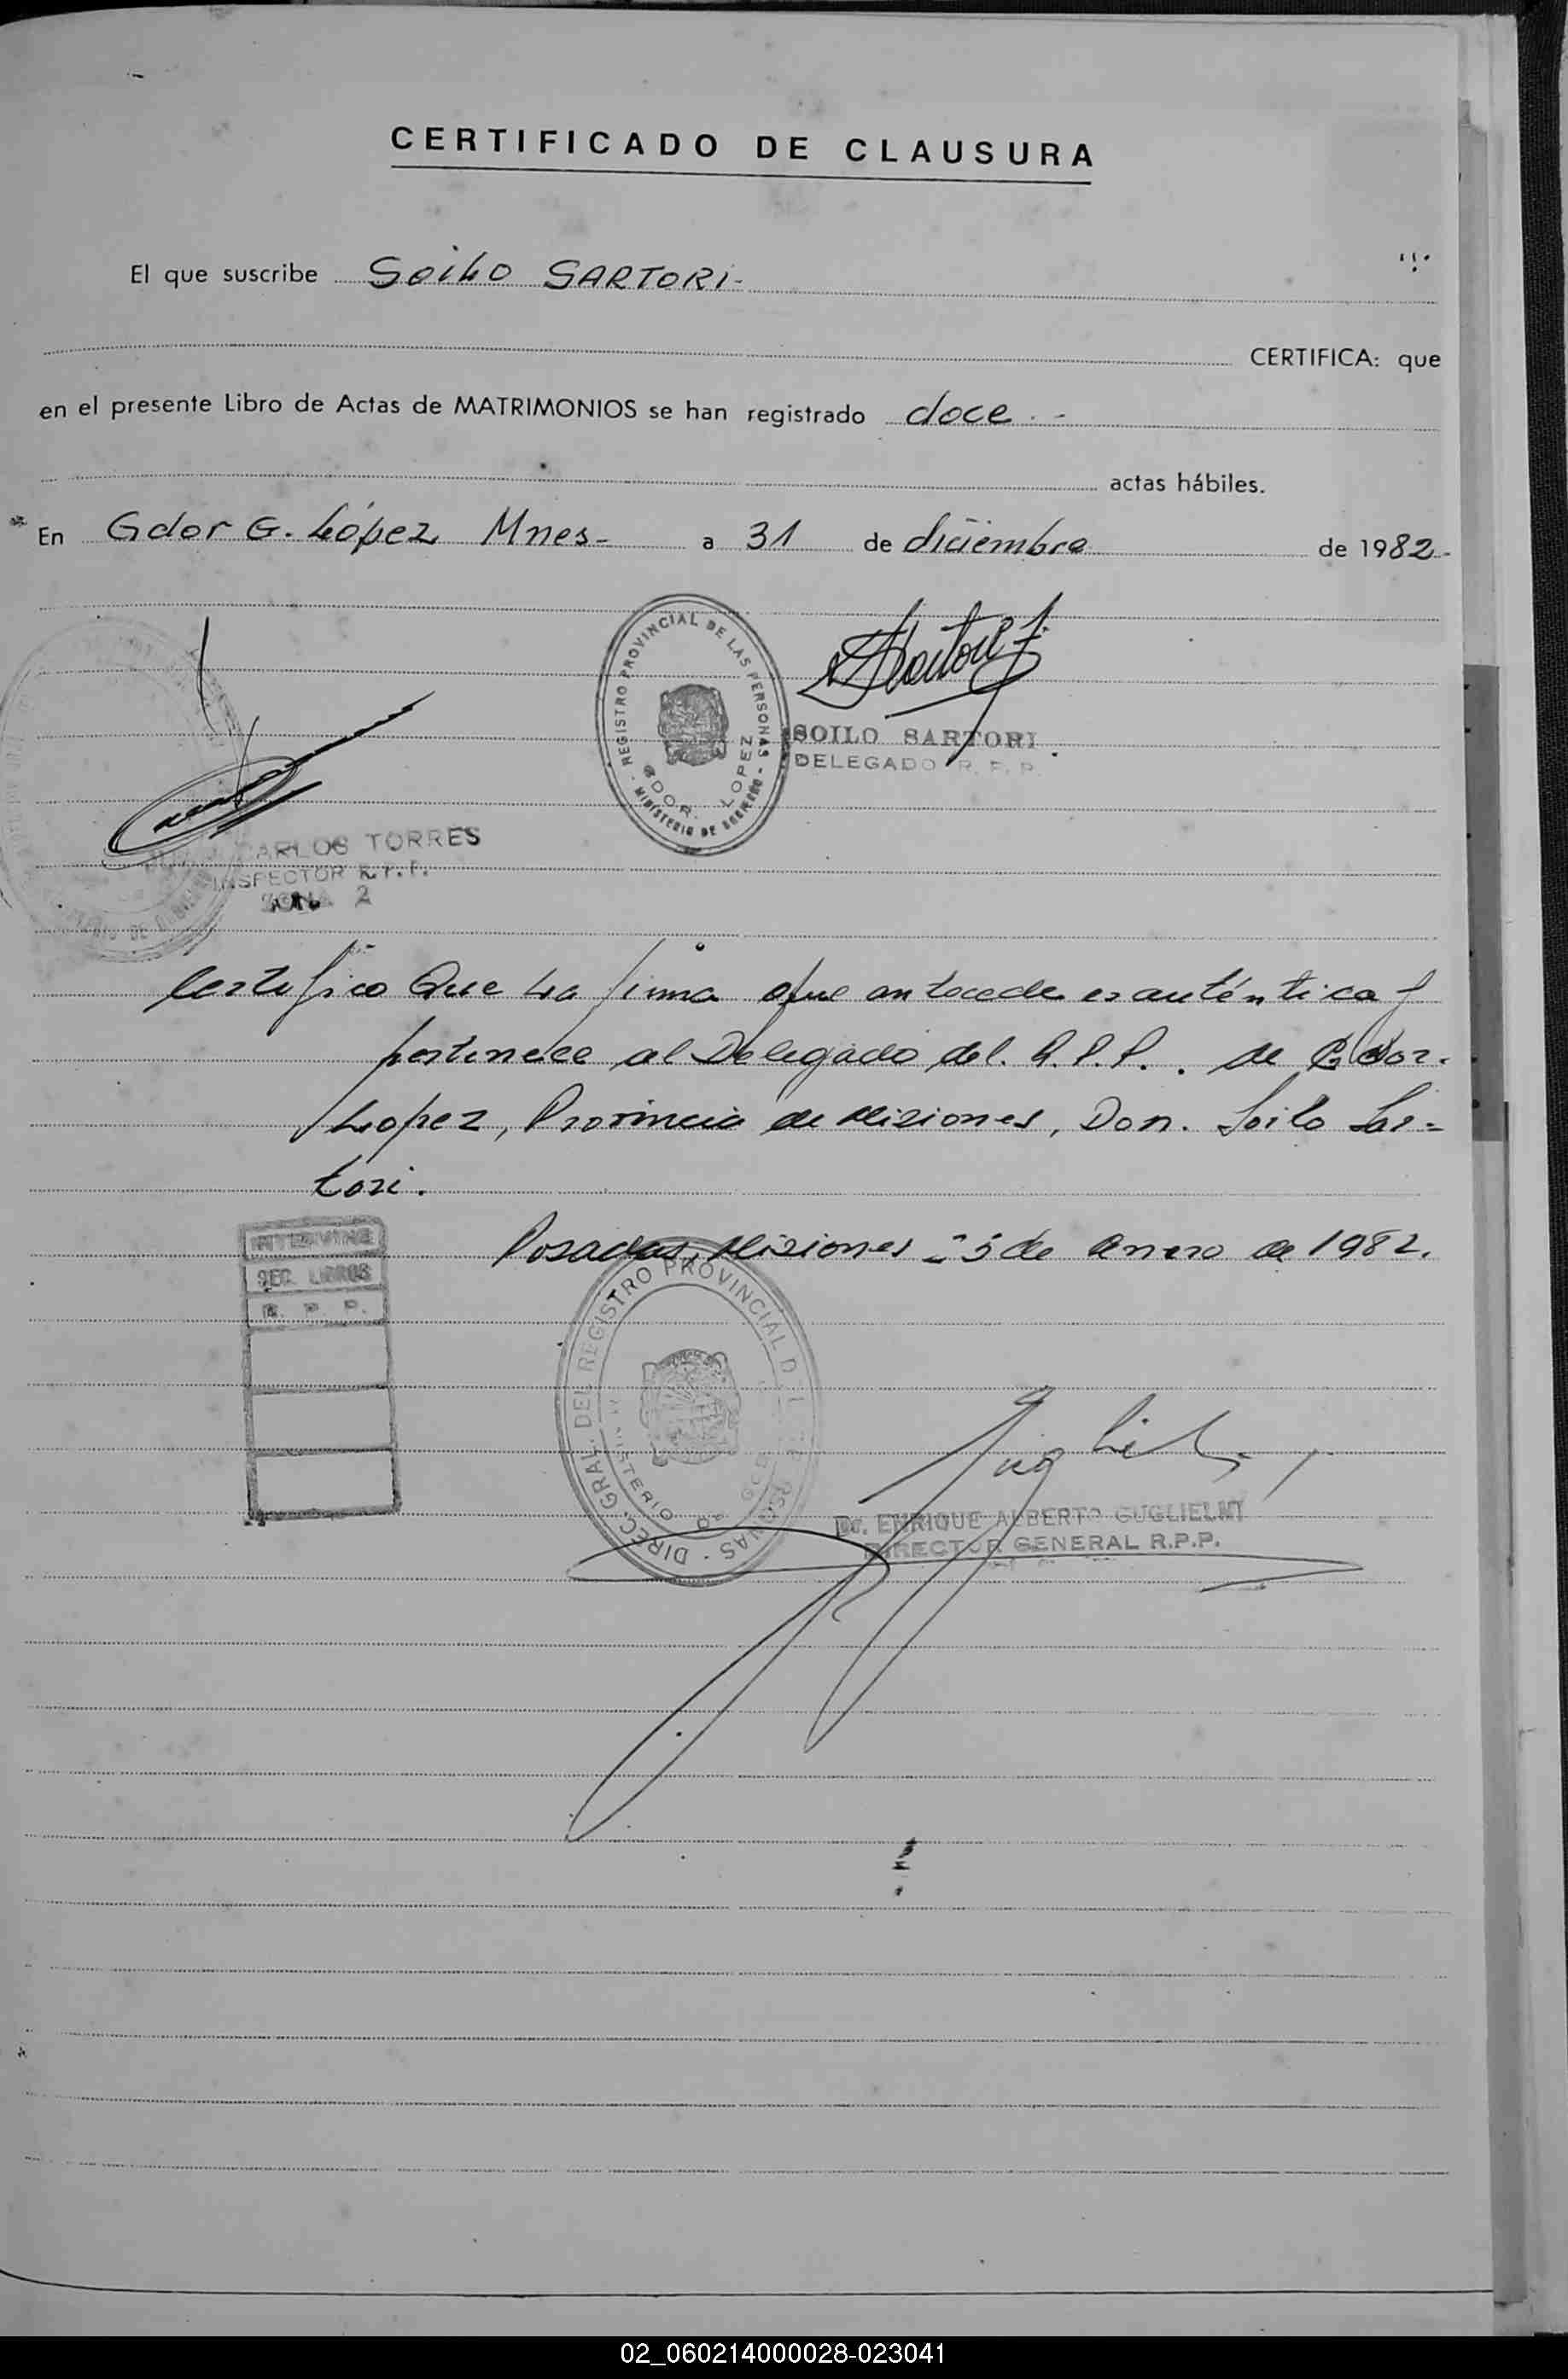 CERTIFICADO DE CLAUSURA
El que suscribe Soilo SARTORI-
CERTIFICA: que
en el presente Libro de Actas de MATRIMONIOS se han registrado doce.-
actas hábiles.
En Gdor G. López Mnes- a 31 de diciembre de 1982-
REGISTRO PROVINCIAL DE LAS PERSONAS - MINISTERIO DE GOBIERNO -
GDOR. LOPEZ
SOILO SARTORI
DELEGADO R. P. P.
CARLOS TORRES
INSPECTOR R.P.P.
ZONA 2
Certifico Que La firma que antecede es auténtica y
pertenece al Delegado del. R.P.P. . de Gdor.
Lopez, Provincia de Misiones, Don. Soilo Sar=
tori.
Posadas, Misiones 25 de Enero de 1982.
INTERVINE
SEC. LIBROS
R. P. P.
DIREC. GRAL. DEL REGISTRO PROVINCIAL D PERSONAS -
MINISTERIO DE
Dr. ENRIQUE ALBERTO GUGLIELMI
DIRECTOR GENERAL R.P.P.
02_060214000028-023041